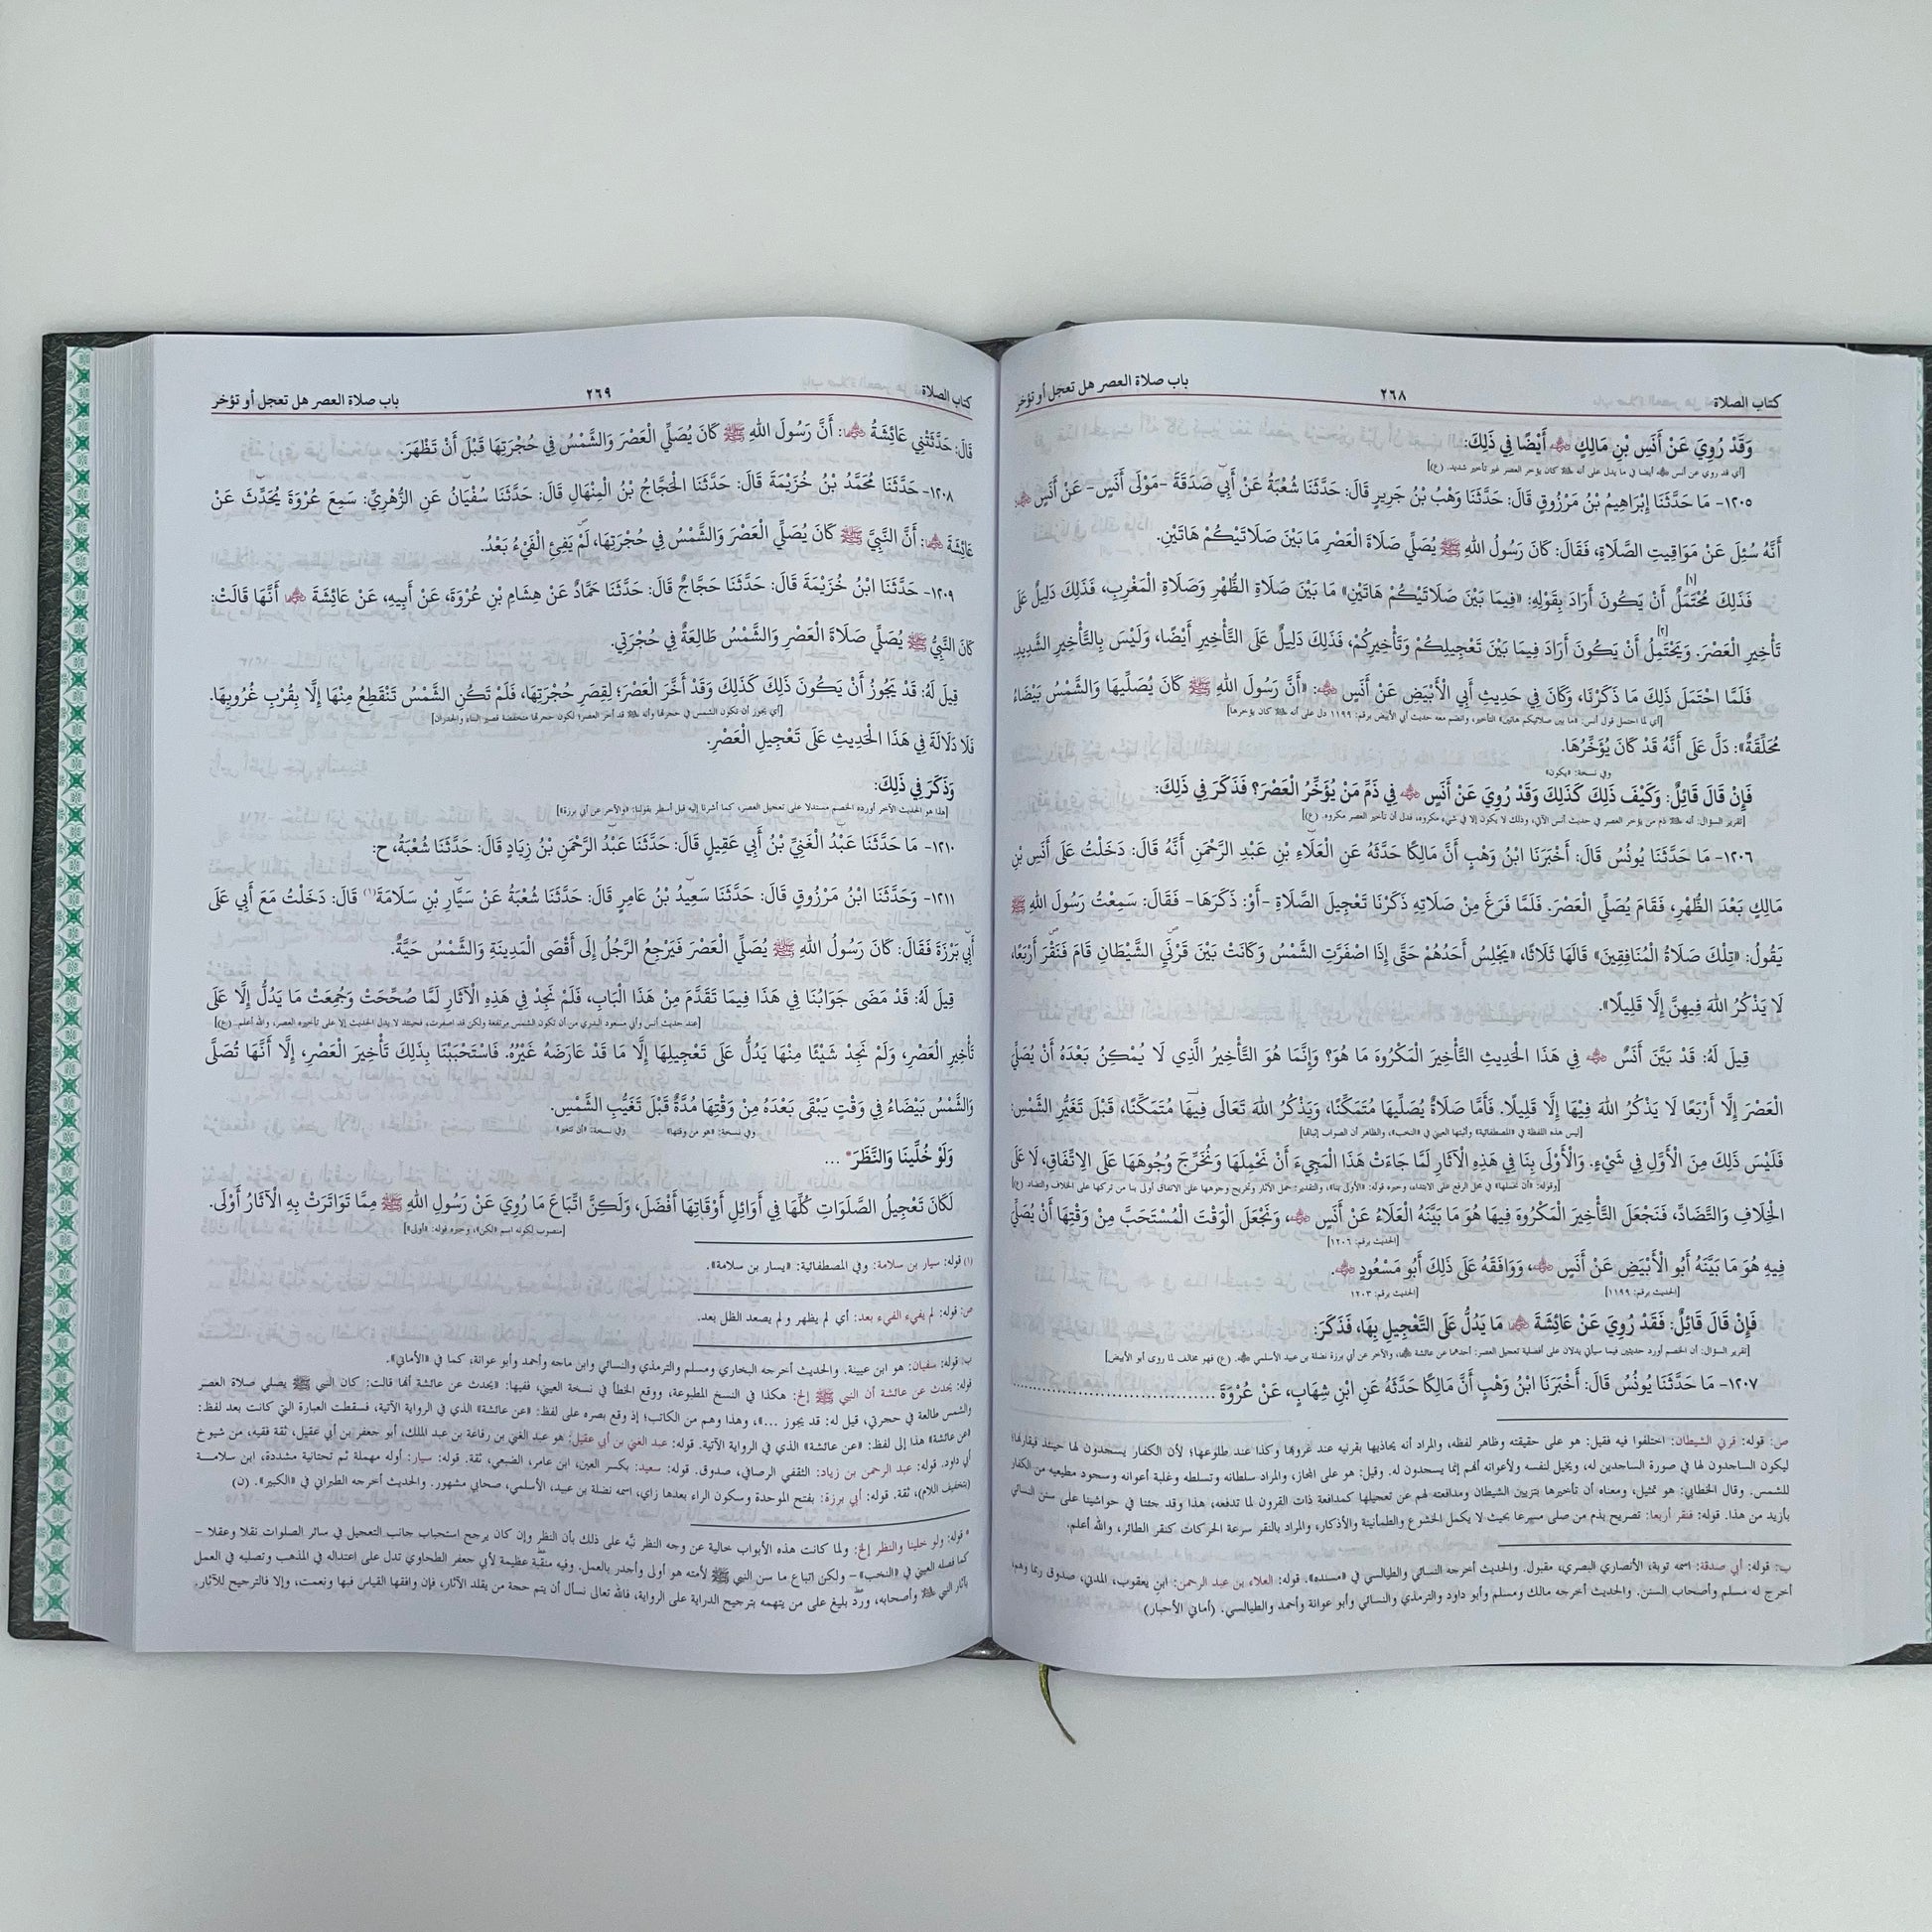 كتاب الصلاة ٢٦٨ باب صلاة العصر هل تعجل أو تؤخر
وَقَدْ رُوِيَ عَنْ أَنَسِ بْنِ مَالِكٍ ﷺ أَيْضًا فِي ذَلِكَ:
[أي قد روي عن أنس أيضا في ما يدل على أنه ﷺ كان يؤخر العصر غير تأخير شديد. (ع)]
١٢٠٥- مَا حَدَّثَنَا إِبْرَاهِيمُ بْنُ مَرْزُوقٍ قَالَ: حَدَّثَنَا وَهْبُ بْنُ جَرِيرٍ قَالَ: حَدَّثَنَا شُعْبَةُ عَنْ أَبِي صَدَقَةَ -مَوْلَى أَنَسٍ- عَنْ أَنَسٍ
أَنَّهُ سُئِلَ عَنْ مَوَاقِيتِ الصَّلَاةِ، فَقَالَ: كَانَ رَسُولُ اللهِ ﷺ يُصَلِّي صَلَاةَ الْعَصْرِ مَا بَيْنَ صَلَاتَيْكُمْ هَاتَيْنِ.
فَذَلِكَ مُحْتَمَلٌ أَنْ يَكُونَ أَرَادَ بِقَوْلِهِ: «فِيمَا بَيْنَ صَلَاتَيْكُمْ هَاتَيْنِ» مَا بَيْنَ صَلَاةِ الظُّهْرِ وَصَلَاةِ الْمَغْرِبِ، فَذَلِكَ دَلِيلٌ عَلَى
تَأْخِيرِ الْعَصْرِ. وَيَحْتَمِلُ أَنْ يَكُونَ أَرَادَ فِيمَا بَيْنَ تَعْجِيلِكُمْ وَتَأْخِيرِكُمْ، فَذَلِكَ دَلِيلٌ عَلَى التَّأْخِيرِ أَيْضًا، وَلَيْسَ بِالتَّأْخِيرِ الشَّدِيدِ.
فَلَمَّا احْتَمَلَ ذَلِكَ مَا ذَكَرْنَا، وَكَانَ فِي حَدِيثِ أَبِي الْأَبْيَضِ عَنْ أَنَسٍ: «أَنَّ رَسُولَ اللهِ ﷺ كَانَ يُصَلِّيهَا وَالشَّمْسُ بَيْضَاءُ
[أي لما احتمل قول أنس: «ما بين صلاتيكم هاتين» التأخير، وانضم معه حديث أبي الأبيض برقم: ١١٩٩ دل على أنه ﷺ كان يؤخرها]
مُحَلِّقَةٌ»: دَلَّ عَلَى أَنَّهُ قَدْ كَانَ يُؤَخِّرُهَا.
وفي نسخة: «يكون»
فَإِنْ قَالَ قَائِلٌ: وَكَيْفَ ذَلِكَ كَذَلِكَ وَقَدْ رُوِيَ عَنْ أَنَسٍ فِي ذَمِّ مَنْ يُؤَخِّرُ الْعَصْرَ؟ فَذَكَرَ فِي ذَلِكَ:
[تقرير السؤال: أنه ﷺ ذم من يؤخر العصر في حديث أنس الآتي، وذلك لا يكون إلا في شيء مكروه، فدل أن تأخير العصر مكروه. (ع)]
١٢٠٦- مَا حَدَّثَنَا يُونُسُ قَالَ: أَخْبَرَنَا ابْنُ وَهْبٍ أَنَّ مَالِكًا حَدَّثَهُ عَنِ الْعَلَاءِ بْنِ عَبْدِ الرَّحْمَنِ أَنَّهُ قَالَ: دَخَلْتُ عَلَى أَنَسِ بْنِ
مَالِكٍ بَعْدَ الظُّهْرِ، فَقَامَ يُصَلِّي الْعَصْرَ. فَلَمَّا فَرَغَ مِنْ صَلَاتِهِ ذَكَرْنَا تَعْجِيلَ الصَّلَاةِ -أَوْ: ذَكَرَهَا- فَقَالَ: سَمِعْتُ رَسُولَ اللهِ ﷺ
يَقُولُ: «تِلْكَ صَلَاةُ الْمُنَافِقِينَ» قَالَهَا ثَلَاثًا، «يَجْلِسُ أَحَدُهُمْ حَتَّى إِذَا اصْفَرَّتِ الشَّمْسُ وَكَانَتْ بَيْنَ قَرْنَيِ الشَّيْطَانِ قَامَ فَنَقَرَ أَرْبَعًا،
لَا يَذْكُرُ اللهَ فِيهِنَّ إِلَّا قَلِيلًا».
قِيلَ لَهُ: قَدْ بَيَّنَ أَنَسٌ فِي هَذَا الْحَدِيثِ التَّأْخِيرَ الْمَكْرُوهَ مَا هُوَ؟ وَإِنَّمَا هُوَ التَّأْخِيرُ الَّذِي لَا يُمْكِنُ بَعْدَهُ أَنْ يُصَلِّيَ
الْعَصْرَ إِلَّا أَرْبَعًا لَا يَذْكُرُ اللهَ فِيهَا إِلَّا قَلِيلًا. فَأَمَّا صَلَاةٌ يُصَلِّيهَا مُتَمَكِّنًا، وَيَذْكُرُ اللهَ تَعَالَى فِيهَا مُتَمَكِّنًا، قَبْلَ تَغَيُّرِ الشَّمْسِ:
[ليس هذه اللفظة في «المصطفائية» وأثبتها العيني في «النخب»، والظاهر أن الصواب إثباتها]
فَلَيْسَ ذَلِكَ مِنَ الْأَوَّلِ فِي شَيْءٍ. وَالْأَوْلَى بِنَا فِي هَذِهِ الْآثَارِ لَمَّا جَاءَتْ هَذَا الْمَجِيءَ أَنْ نَحْمِلَهَا وَنُخَرِّجَ وُجُوهَهَا عَلَى الِاتِّفَاقِ، لَا عَلَى
[وقوله: «أن نحملها» في محل الرفع على الابتداء، وخبره قوله: «الأولى بنا»، والتقدير: حمل الآثار وتخريج وجوهها على الاتفاق أولى بنا من تركها على الخلاف والتضاد (ع)]
الْخِلَافِ وَالتَّضَادِّ، فَنَجْعَلَ التَّأْخِيرَ الْمَكْرُوهَ فِيهَا هُوَ مَا بَيَّنَهُ الْعَلَاءُ عَنْ أَنَسٍ، وَنَجْعَلَ الْوَقْتَ الْمُسْتَحَبَّ مِنْ وَقْتِهَا أَنْ يُصَلِّيَ
[الحديث برقم: ١٢٠٦]
فِيهِ هُوَ مَا بَيَّنَهُ أَبُو الْأَبْيَضِ عَنْ أَنَسٍ، وَوَافَقَهُ عَلَى ذَلِكَ أَبُو مَسْعُودٍ.
[الحديث برقم: ١١٩٩] [الحديث برقم: ١٢٠٣
فَإِنْ قَالَ قَائِلٌ: فَقَدْ رُوِيَ عَنْ عَائِشَةَ مَا يَدُلُّ عَلَى التَّعْجِيلِ بِهَا، فَذَكَرَ:
[تقرير السؤال: أن الخصم أورد حديثين فيما سيأتي يدلان على أفضلية تعجيل العصر: أحدهما عن عائشة، والآخر عن أبي برزة نضلة بن عبيد الأسلمي. (ع) فهو مخالف لما روى أبو الأبيض]
١٢٠٧- مَا حَدَّثَنَا يُونُسُ قَالَ: أَخْبَرَنَا ابْنُ وَهْبٍ أَنَّ مَالِكًا حَدَّثَهُ عَنِ ابْنِ شِهَابٍ، عَنْ عُرْوَةَ
ص: قوله: قرني الشيطان: اختلفوا فيه فقيل: هو على حقيقته وظاهر لفظه، والمراد أنه يحاذيها بقرنيه عند غروبها وكذا عند طلوعها؛ لأن الكفار يسجدون لها حينئذ فيقارنها؛
ليكون الساجدون لها في صورة الساجدين له، ويخيل لنفسه ولأعوانه أنهم إنما يسجدون له. وقيل: هو على المجاز، والمراد سلطانه وتسلطه وغلبة أعوانه وسجود مطيعيه من الكفار
للشمس. وقال الخطابي: هو تمثيل، ومعناه أن تأخيرها بتزيين الشيطان ومدافعته لهم عن تعجيلها كمدافعة ذات القرون لما تدفعه، هذا وقد جئنا في حواشينا على سنن النسائي
بأزيد من هذا. قوله: فنقر أربعا: تصريح بذم من صلى مسرعا بحيث لا يكمل الخشوع والطمأنينة والأذكار، والمراد بالنقر سرعة الحركات كنقر الطائر، والله أعلم.
ب: قوله: أبي صدقة: اسمه توبة، الأنصاري البصري، مقبول. والحديث أخرجه النسائي والطيالسي في «مسنده». قوله: العلاء بن عبد الرحمن: ابن يعقوب، المدني، صدوق ربما وهم،
أخرج له مسلم وأصحاب السنن. والحديث أخرجه مالك ومسلم وأبو داود والترمذي والنسائي وأبو عوانة وأحمد والطيالسي. (أماني الأحبار)
كتاب الصلاة ٢٦٩ باب صلاة العصر هل تعجل أو تؤخر
قَالَ: حَدَّثَتْنِي عَائِشَةُ: أَنَّ رَسُولَ اللهِ ﷺ كَانَ يُصَلِّي الْعَصْرَ وَالشَّمْسُ فِي حُجْرَتِهَا قَبْلَ أَنْ تَظْهَرَ.
١٢٠٨- حَدَّثَنَا مُحَمَّدُ بْنُ خُزَيْمَةَ قَالَ: حَدَّثَنَا الْحَجَّاجُ بْنُ الْمِنْهَالِ قَالَ: حَدَّثَنَا سُفْيَانُ عَنِ الزُّهْرِيِّ: سَمِعَ عُرْوَةَ يُحَدِّثُ عَنْ
عَائِشَةَ: أَنَّ النَّبِيَّ ﷺ كَانَ يُصَلِّي الْعَصْرَ وَالشَّمْسُ فِي حُجْرَتِهَا، لَمْ يَفِئِ الْفَيْءُ بَعْدُ.
١٢٠٩- حَدَّثَنَا ابْنُ خُزَيْمَةَ قَالَ: حَدَّثَنَا حَجَّاجٌ قَالَ: حَدَّثَنَا حَمَّادٌ عَنْ هِشَامِ بْنِ عُرْوَةَ، عَنْ أَبِيهِ، عَنْ عَائِشَةَ أَنَّهَا قَالَتْ:
كَانَ النَّبِيُّ ﷺ يُصَلِّي صَلَاةَ الْعَصْرِ وَالشَّمْسُ طَالِعَةٌ فِي حُجْرَتِي.
قِيلَ لَهُ: قَدْ يَجُوزُ أَنْ يَكُونَ ذَلِكَ كَذَلِكَ وَقَدْ أَخَّرَ الْعَصْرَ؛ لِقِصَرِ حُجْرَتِهَا، فَلَمْ تَكُنِ الشَّمْسُ تَنْقَطِعُ مِنْهَا إِلَّا بِقُرْبِ غُرُوبِهَا.
[أي يجوز أن تكون الشمس في حجرتها وأنه ﷺ قد أخر العصر؛ لكون حجرتها منخفضة قصير البناء والجدران]
فَلَا دَلَالَةَ فِي هَذَا الْحَدِيثِ عَلَى تَعْجِيلِ الْعَصْرِ.
وَذَكَرَ فِي ذَلِكَ:
[هذا هو الحديث الآخر أورده الخصم مستدلا على تعجيل العصر، كما أشرنا إليه قبل أسطر بقولنا: «والآخر عن أبي برزة»]
١٢١٠- مَا حَدَّثَنَا عَبْدُ الْغَنِيِّ بْنُ أَبِي عَقِيلٍ قَالَ: حَدَّثَنَا عَبْدُ الرَّحْمَنِ بْنُ زِيَادٍ قَالَ: حَدَّثَنَا شُعْبَةُ، ح:
١٢١١- وَحَدَّثَنَا ابْنُ مَرْزُوقٍ قَالَ: حَدَّثَنَا سَعِيدُ بْنُ عَامِرٍ قَالَ: حَدَّثَنَا شُعْبَةُ عَنْ سَيَّارِ بْنِ سَلَامَةَ(١) قَالَ: دَخَلْتُ مَعَ أَبِي عَلَى
أَبِي بَرْزَةَ فَقَالَ: كَانَ رَسُولُ اللهِ ﷺ يُصَلِّي الْعَصْرَ فَيَرْجِعُ الرَّجُلُ إِلَى أَقْصَى الْمَدِينَةِ وَالشَّمْسُ حَيَّةٌ.
قِيلَ لَهُ: قَدْ مَضَى جَوَابُنَا فِي هَذَا فِيمَا تَقَدَّمَ مِنْ هَذَا الْبَابِ، فَلَمْ نَجِدْ فِي هَذِهِ الْآثَارِ لَمَّا صُحِّحَتْ وَجُمِعَتْ مَا يَدُلُّ إِلَّا عَلَى
[عند حديث أنس وأبي مسعود البدري من أن تكون الشمس مرتفعة ولكن قد اصفرت، فحينئذ لا يدل الحديث إلا على تأخيره العصر، والله أعلم. (ع)]
تَأْخِيرِ الْعَصْرِ، وَلَمْ نَجِدْ شَيْئًا مِنْهَا يَدُلُّ عَلَى تَعْجِيلِهَا إِلَّا مَا قَدْ عَارَضَهُ غَيْرُهُ. فَاسْتَحْبَبْنَا بِذَلِكَ تَأْخِيرَ الْعَصْرِ، إِلَّا أَنَّهَا تُصَلَّى
وَالشَّمْسُ بَيْضَاءُ فِي وَقْتٍ يَبْقَى بَعْدَهُ مِنْ وَقْتِهَا مُدَّةٌ قَبْلَ تَغَيُّبِ الشَّمْسِ.
وفي نسخة: «هو من وقتها» وفي نسخة: «أن تتغير»
وَلَوْ خُلِّينَا وَالنَّظَرَ* ...
لَكَانَ تَعْجِيلُ الصَّلَوَاتِ كُلِّهَا فِي أَوَائِلِ أَوْقَاتِهَا أَفْضَلَ، وَلَكِنَّ اتِّبَاعَ مَا رُوِيَ عَنْ رَسُولِ اللهِ ﷺ مِمَّا تَوَاتَرَتْ بِهِ الْآثَارُ أَوْلَى.
[منصوب لكونه اسم «لكن»، وخبره قوله: «أولى»]
(١) قوله: سيار بن سلامة: وفي المصطفائية: «يسار بن سلامة».
ص: قوله: لم يفيء الفيء بعد: أي لم يظهر ولم يصعد الظل بعد.
ب: قوله: سفيان: هو ابن عيينة. والحديث أخرجه البخاري ومسلم والترمذي والنسائي وابن ماجه وأحمد وأبو عوانة، كما في «الأماني».
قوله: يحدث عن عائشة أن النبي ﷺ إلخ: هكذا في النسخ المطبوعة، ووقع الخطأ في نسخة العيني، ففيها: «يحدث عن عائشة أنها قالت: كان النبي ﷺ يصلي صلاة العصر
والشمس طالعة في حجرتي، قيل له: قد يجوز ...»، وهذا وهم من الكاتب؛ إذ وقع بصره على لفظ: «عن عائشة» الذي في الرواية الآتية، فسقطت العبارة التي كانت بعد لفظ:
«عن عائشة» هذا إلى لفظ: «عن عائشة» الذي في الرواية الآتية. قوله: عبد الغني بن أبي عقيل: هو عبد الغني بن رفاعة بن عبد الملك، أبو جعفر بن أبي عقيل، ثقة فقيه، من شيوخ
أبي داود. قوله: عبد الرحمن بن زياد: الثقفي الرصاصي، صدوق. قوله: سعيد: بكسر العين، ابن عامر، الضبعي، ثقة. قوله: سيار: أوله مهملة ثم تحتانية مشددة، ابن سلامة
(بتخفيف اللام)، ثقة. قوله: أبي برزة: بفتح الموحدة وسكون الراء بعدها زاي، اسمه نضلة بن عبيد، الأسلمي، صحابي مشهور. والحديث أخرجه الطبراني في «الكبير». (ن)
* قوله: ولو خلينا والنظر إلخ: ولما كانت هذه الأبواب خالية عن وجه النظر نبَّه على ذلك بأن النظر وإن كان يرجح استحباب جانب التعجيل في سائر الصلوات نقلا وعقلا –
كما فصله العيني في «النخب» – ولكن اتباع ما سن النبي ﷺ لأمته هو أولى وأجدر بالعمل. وفيه منقبة عظيمة لأبي جعفر الطحاوي تدل على اعتداله في المذهب وتصلبه في العمل
بآثار النبي ﷺ وأصحابه، وردٌّ بليغ على من يتهمه بترجيح الدراية على الرواية، فالله تعالى نسأل أن يتم حجة من يقلد الآثار، فإن وافقها القياس فبها ونعمت، وإلا فالترجيح للآثار.